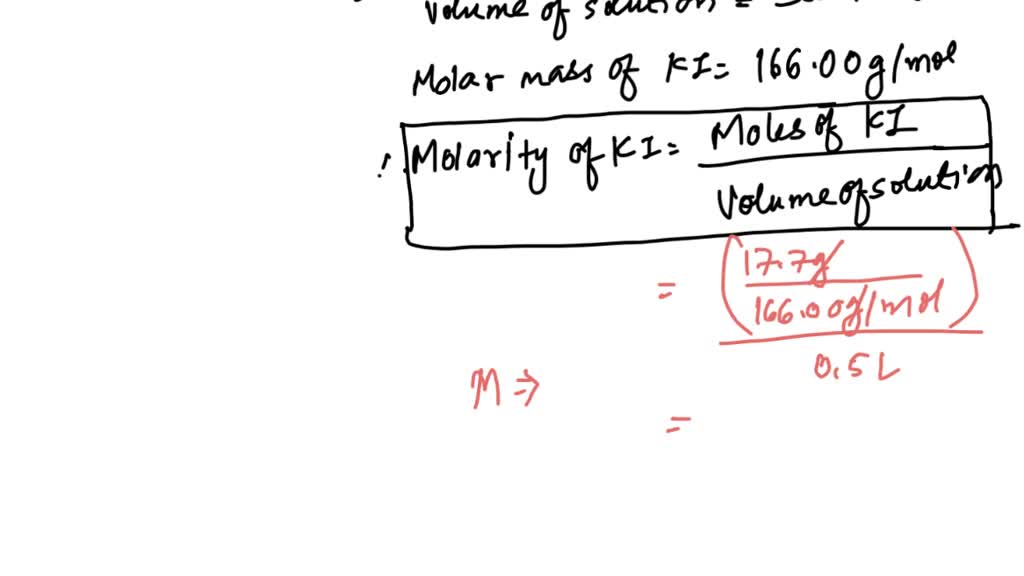 Volume of solution =
Molar mass of KI = 166.00g/mol
∴ Molarity of KI = Moles of KI
Volume of solution
= (17.7g
166.00g/mol)
0.5L
M ⇒
=